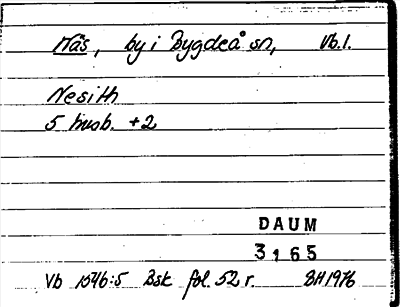 Näs, by i Bygdeå sn, Vb.l.
Nesith
5 husb. +2
DAUM
3165
Vb 1546:5 Bsk fol. 52 r. BH 1976